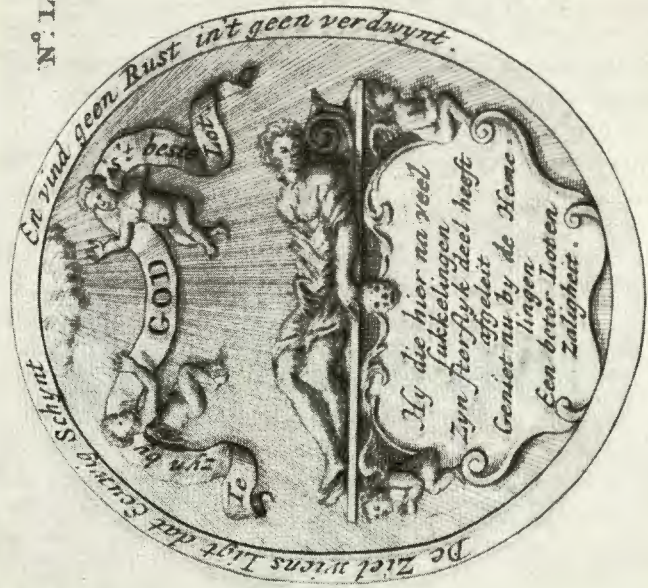 N.º L
De Ziel wiens Ligt dat Eeuwig Schynt
En vind geen Rust in't geen verdwynt.
Te zyn by GOD is't beste Lot
Hy die hier na veel
sukkelingen
Zyn sterflyk deel heeft
afgeleit
Geniet nu by de Heme-
lingen
Een beter Lot en
Zaligheit.